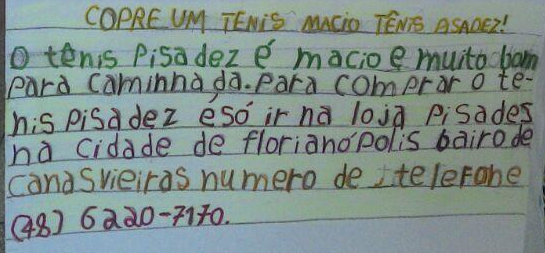 COPRE UM TÊNIS MACIO TÊNIS ASADEZ!
O tênis Pisadez é macio e muito bom
para caminhada. Para comprar o te-
nis pisadez é só ir na loja pisades
na cidade de florianópolis bairo de
canasvieiras numero de telefone
(48) 6220-7170.